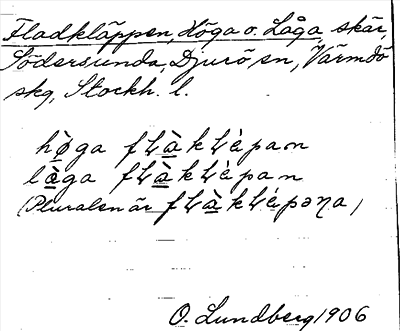 Fladkläppen, Höga o. Låga, skär,
Södersunda, Djurö sn, Värmdö
skg, Stockh. l.
hø̀ga fɫàkɫépan
læ̀ga fɫàkɫépan
(Pluralen är fɫàkɫépəna)
O. Lundberg 1906